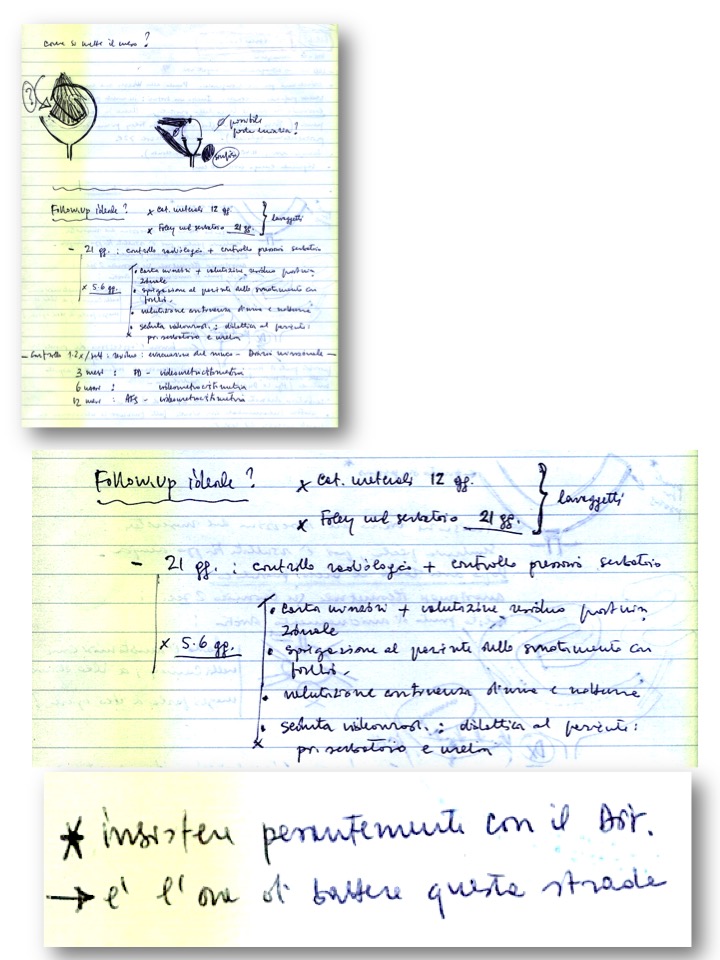 come si mette il meso ?
?
possibile
porta
?
Follow up ideale ? x Cat. ureterali 12 gg.
x Foley nel serbatoio 21 gg.
lavaggetti
- 21 gg. : controllo radiologico + controllo pressorio serbatoio
x 5-6 gg.
• carta minzioni + valutazione residuo postmin
zionale
• spiegazione al paziente dello svuotamento con
• valutazione continenza diurna e notturna
• seduta : didattica al paziente :
serbatoio e uretra
- Controllo 1-2 x / sett : residuo : evacuazione del muco - Diario minzionale -
3 mesi : - videouretrocistometria
6 mesi : videouretrocistometria
12 mesi : - videouretrocistometria
Follow up ideale ? x Cat. ureterali 12 gg.
x Foley nel serbatoio 21 gg.
lavaggetti
- 21 gg. : controllo radiologico + controllo pressorio serbatoio
x 5-6 gg.
• carta minzioni + valutazione residuo postmin
zionale
• spiegazione al paziente dello svuotamento con
• valutazione continenza diurna e notturna
• seduta : didattica al paziente :
serbatoio e uretra
* insistere pesantemente con il
→ e' l'ora di battere questa strada